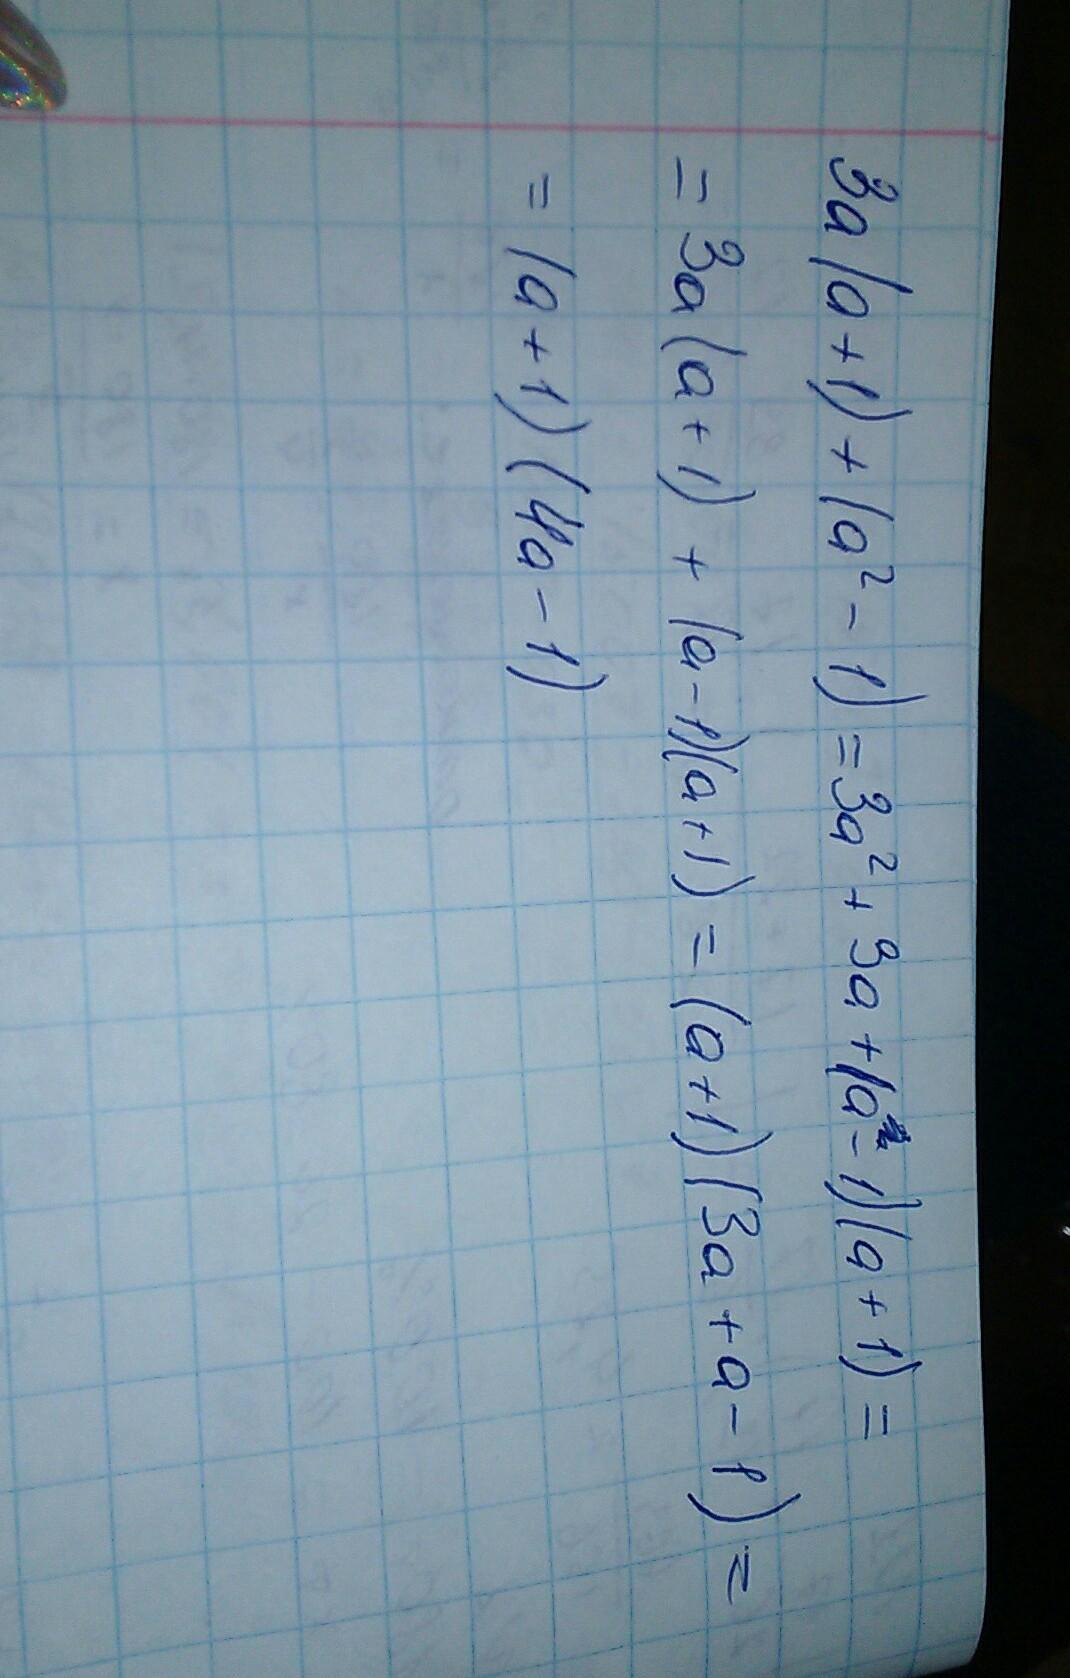 3a(a+1)+(a²-1)=3a²+3a+(a-1)(a+1)=
=3a(a+1)+(a-1)(a+1)=(a+1)(3a+a-1)=
=(a+1)(4a-1)